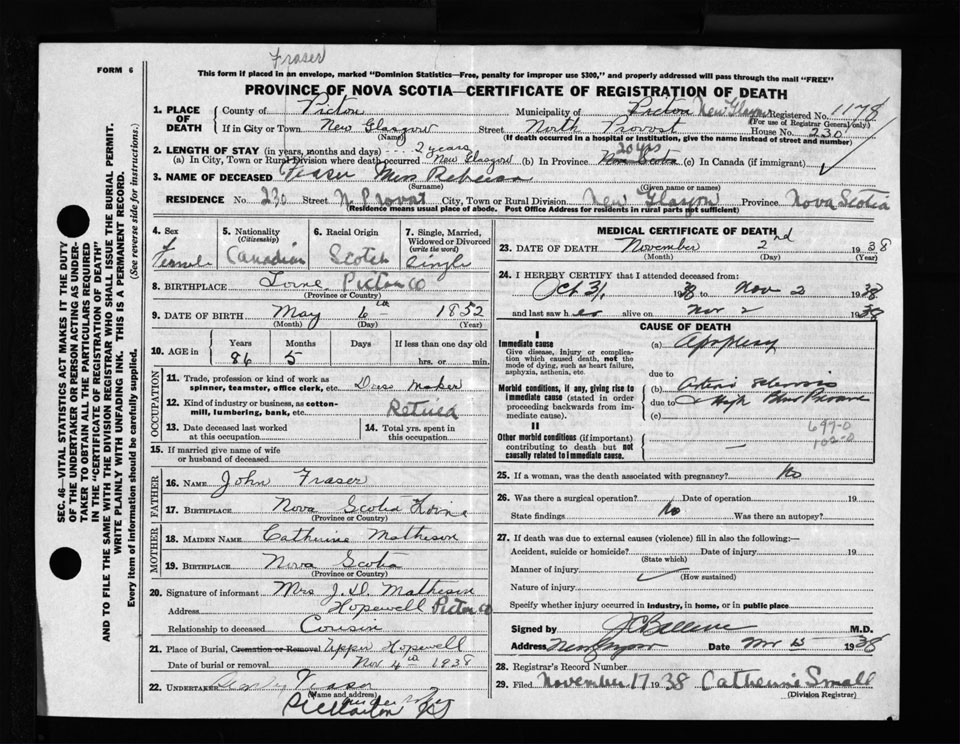 FORM 6
Fraser
This form if placed in an envelope, marked "Dominion Statistics—Free, penalty for improper use $300," and properly addressed will pass through the mail "FREE"
PROVINCE OF NOVA SCOTIA—CERTIFICATE OF REGISTRATION OF DEATH
1. PLACE OF DEATH County of Pictou Municipality of Pictou New Glasgow Registered No. 1178
(For use of Registrar General only)
If in City or Town New Glasgow Street North Provost House No. 230
(Name) (If death occurred in a hospital or institution, give the name instead of street and number)
2. LENGTH OF STAY (in years, months and days) 2 years 20 yrs
(a) In City, Town or Rural Division where death occurred New Glasgow (b) In Province Nova Scotia (c) In Canada (if immigrant)
3. NAME OF DECEASED Fraser Miss Rebecca
(Surname) (Given name or names)
RESIDENCE No. 230 Street N Provost City, Town or Rural Division New Glasgow Province Nova Scotia
(Residence means usual place of abode. Post Office Address for residents in rural parts not sufficient)
4. Sex Female
5. Nationality (Citizenship) Canadian
6. Racial Origin Scotch
7. Single, Married, Widowed or Divorced (write the word) Single
8. BIRTHPLACE Lorne Pictou Co
(Province or Country)
9. DATE OF BIRTH May 6th 1852
(Month) (Day) (Year)
10. AGE in Years 86 Months 5 Days If less than one day old hrs. or min.
OCCUPATION
11. Trade, profession or kind of work as spinner, teamster, office clerk, etc. Dress Maker
12. Kind of industry or business, as cotton-mill, lumbering, bank, etc. Retired
13. Date deceased last worked at this occupation 14. Total yrs. spent in this occupation
15. If married give name of wife or husband of deceased
FATHER
16. NAME John Fraser
17. BIRTHPLACE Nova Scotia Lorne
(Province or Country)
MOTHER
18. MAIDEN NAME Catherine Matheson
19. BIRTHPLACE Nova Scotia
(Province or Country)
20. Signature of informant Mrs J. D. Matheson
Address Hopewell Pictou Co
Relationship to deceased Cousin
21. Place of Burial, Cremation or Removal Upper Hopewell
Date of burial or removal Nov 4th 1938
22. UNDERTAKER Fraser
(Name and address)
MEDICAL CERTIFICATE OF DEATH
23. DATE OF DEATH November 2nd 1938
(Month) (Day) (Year)
24. I HEREBY CERTIFY that I attended deceased from:
Oct 31, 1938 to Nov 2 1938
and last saw her alive on Nov 2 1938
CAUSE OF DEATH
I
Immediate cause (a) Apoplexy
Give disease, injury or complication which caused death, not the mode of dying, such as heart failure, asphyxia, asthenia, etc.
due to
Morbid conditions, if any, giving rise to immediate cause (stated in order proceeding backwards from immediate cause).
(b) Arterio sclerosis
due to High Blood Pressure
(c)
II
Other morbid conditions (if important) contributing to death but not causally related to immediate cause. —
25. If a woman, was the death associated with pregnancy? No
26. Was there a surgical operation? Date of operation 19
State findings No Was there an autopsy?
27. If death was due to external causes (violence) fill in also the following:—
Accident, suicide or homicide? Date of injury 19
(State which)
Manner of injury
(How sustained)
Nature of injury
Specify whether injury occurred in industry, in home, or in public place
Signed by M.D.
Address New Glasgow Date Nov 15 1938
28. Registrar's Record Number
29. Filed November 17 1938 Catherine Small
(Division Registrar)
SEC. 46—VITAL STATISTICS ACT MAKES IT THE DUTY
OF THE UNDERTAKER OR PERSON ACTING AS UNDER-
TAKER TO OBTAIN ALL THE PARTICULARS REQUIRED
IN THE "CERTIFICATE OF REGISTRATION OF DEATH"
AND TO FILE THE SAME WITH THE DIVISION REGISTRAR WHO SHALL ISSUE THE BURIAL PERMIT.
WRITE PLAINLY WITH UNFADING INK. THIS IS A PERMANENT RECORD.
Every item of information should be carefully supplied. (See reverse side for instructions).